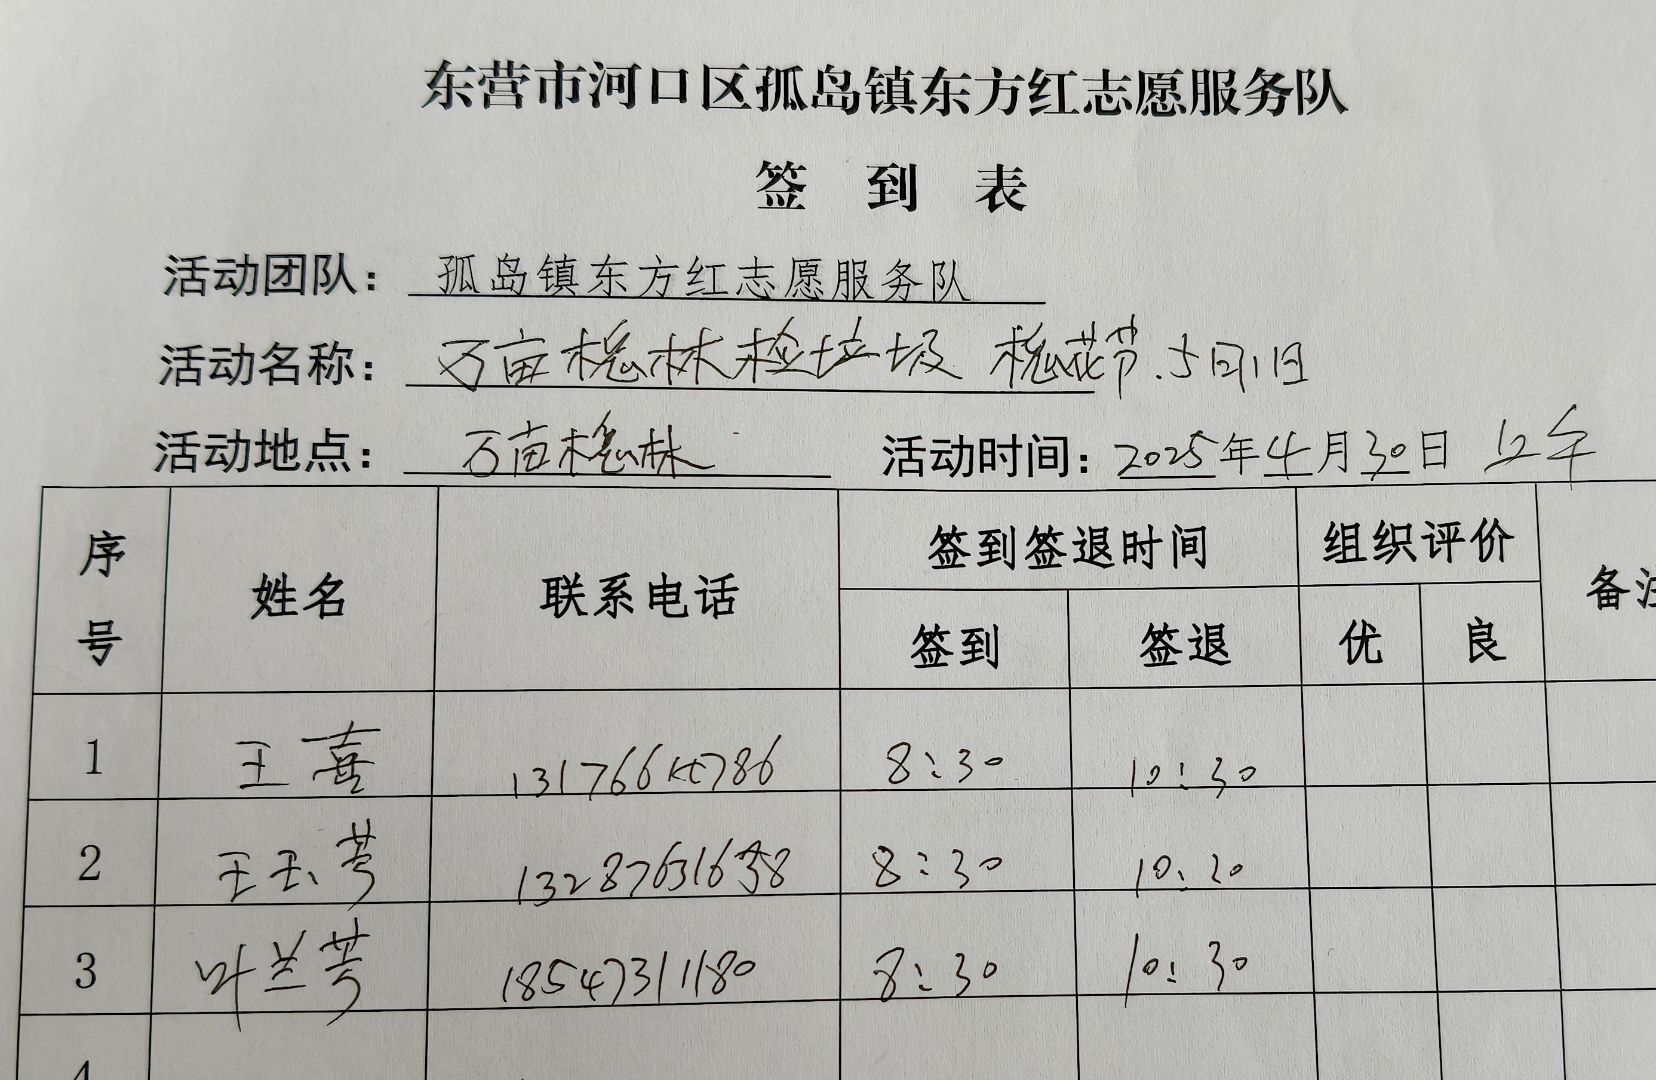 东营市河口区孤岛镇东方红志愿服务队
签 到 表
活动团队： 孤岛镇东方红志愿服务队
活动名称： 万亩槐林检垃圾 槐花节.5月1日
活动地点： 万亩槐林 活动时间：2025年4月30日 上午
序号 姓名 联系电话 签到签退时间 组织评价
签到 签退 优 良 备注
1 王喜 8:30 10:30
2 王玉芳 8:30
3 叶兰芳 18547311180 8:30 10:30
4